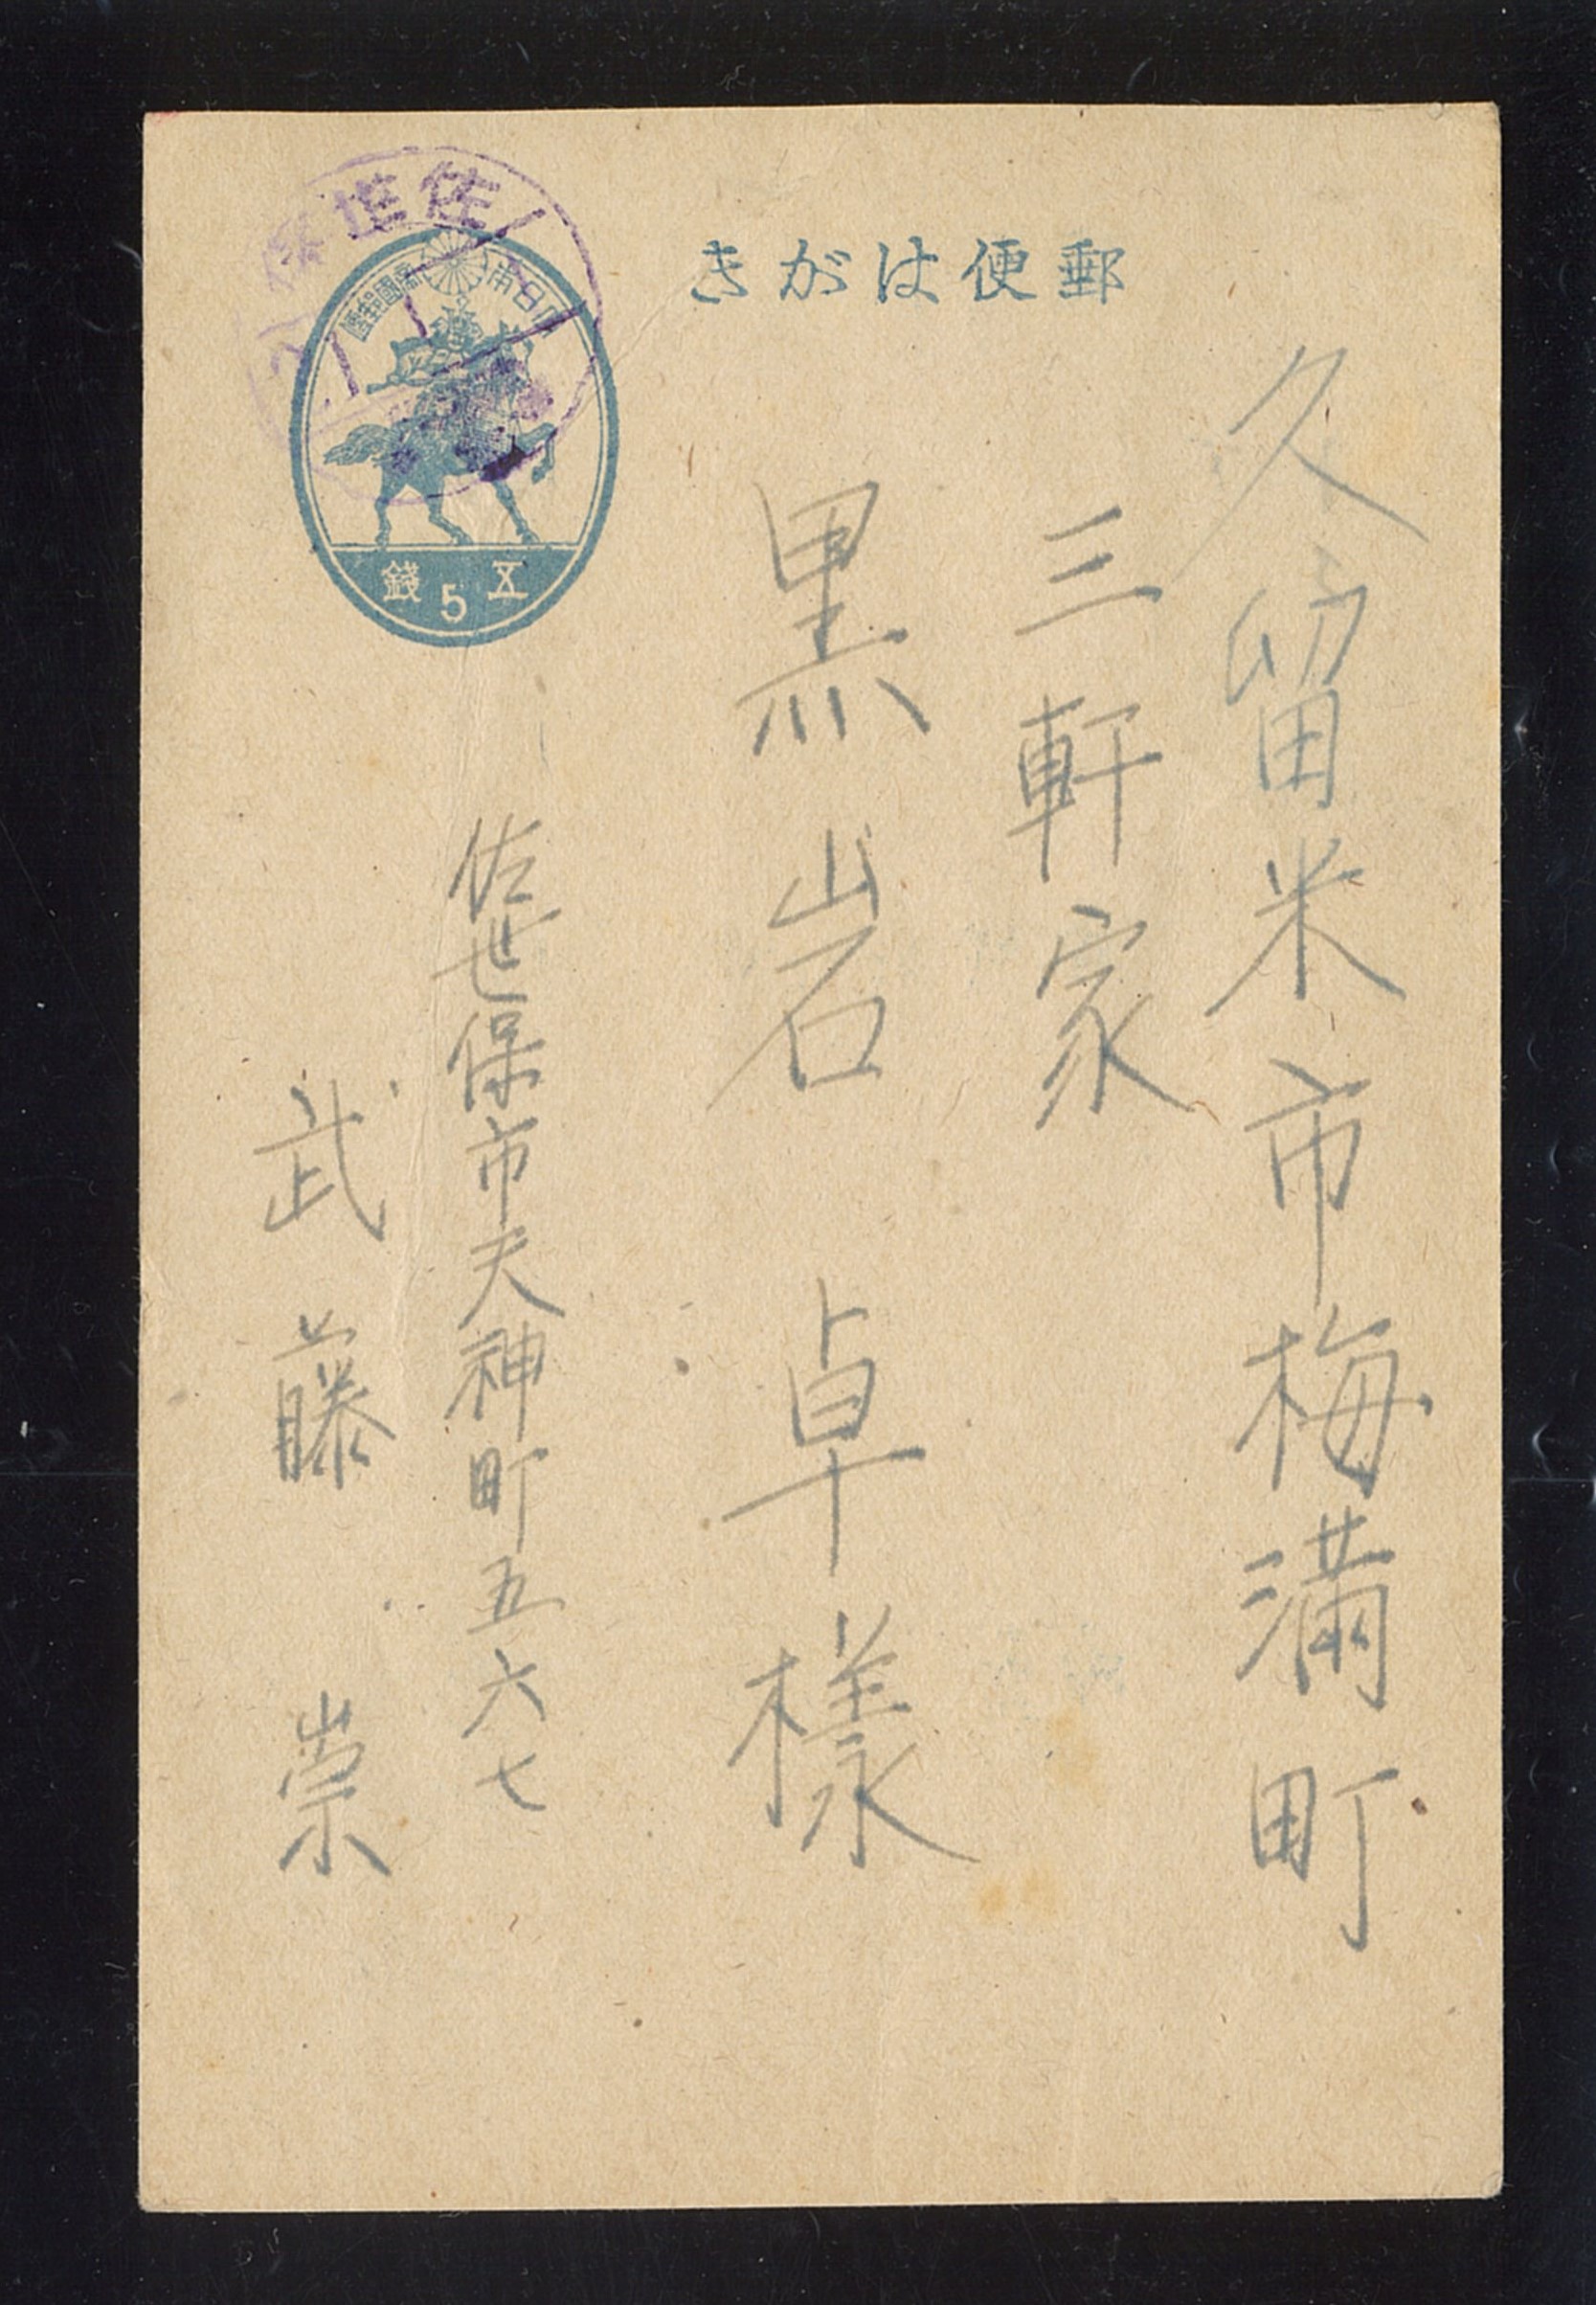 郵便はがき
久留米市梅満町
三軒家
黒岩卓様
佐世保市天神町五六七
武藤崇
佐世保
大日本帝國郵便
五5錢